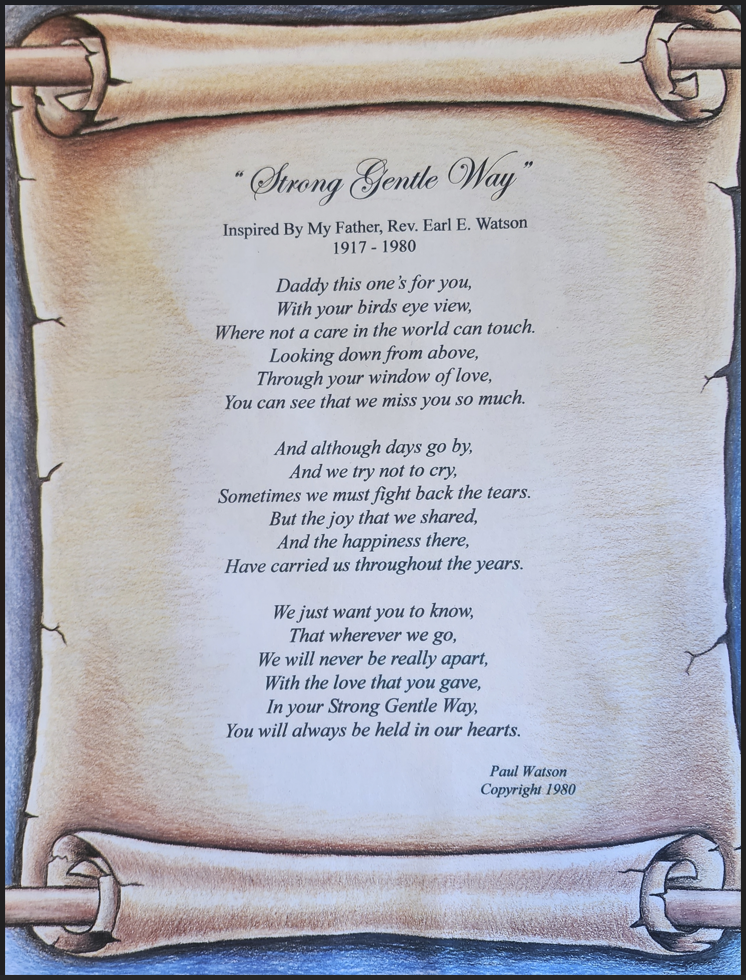 “Strong Gentle Way”
Inspired By My Father, Rev. Earl E. Watson
1917 - 1980
Daddy this one’s for you,
With your birds eye view,
Where not a care in the world can touch.
Looking down from above,
Through your window of love,
You can see that we miss you so much.
And although days go by,
And we try not to cry,
Sometimes we must fight back the tears.
But the joy that we shared,
And the happiness there,
Have carried us throughout the years.
We just want you to know,
That wherever we go,
We will never be really apart,
With the love that you gave,
In your Strong Gentle Way,
You will always be held in our hearts.
Paul Watson
Copyright 1980